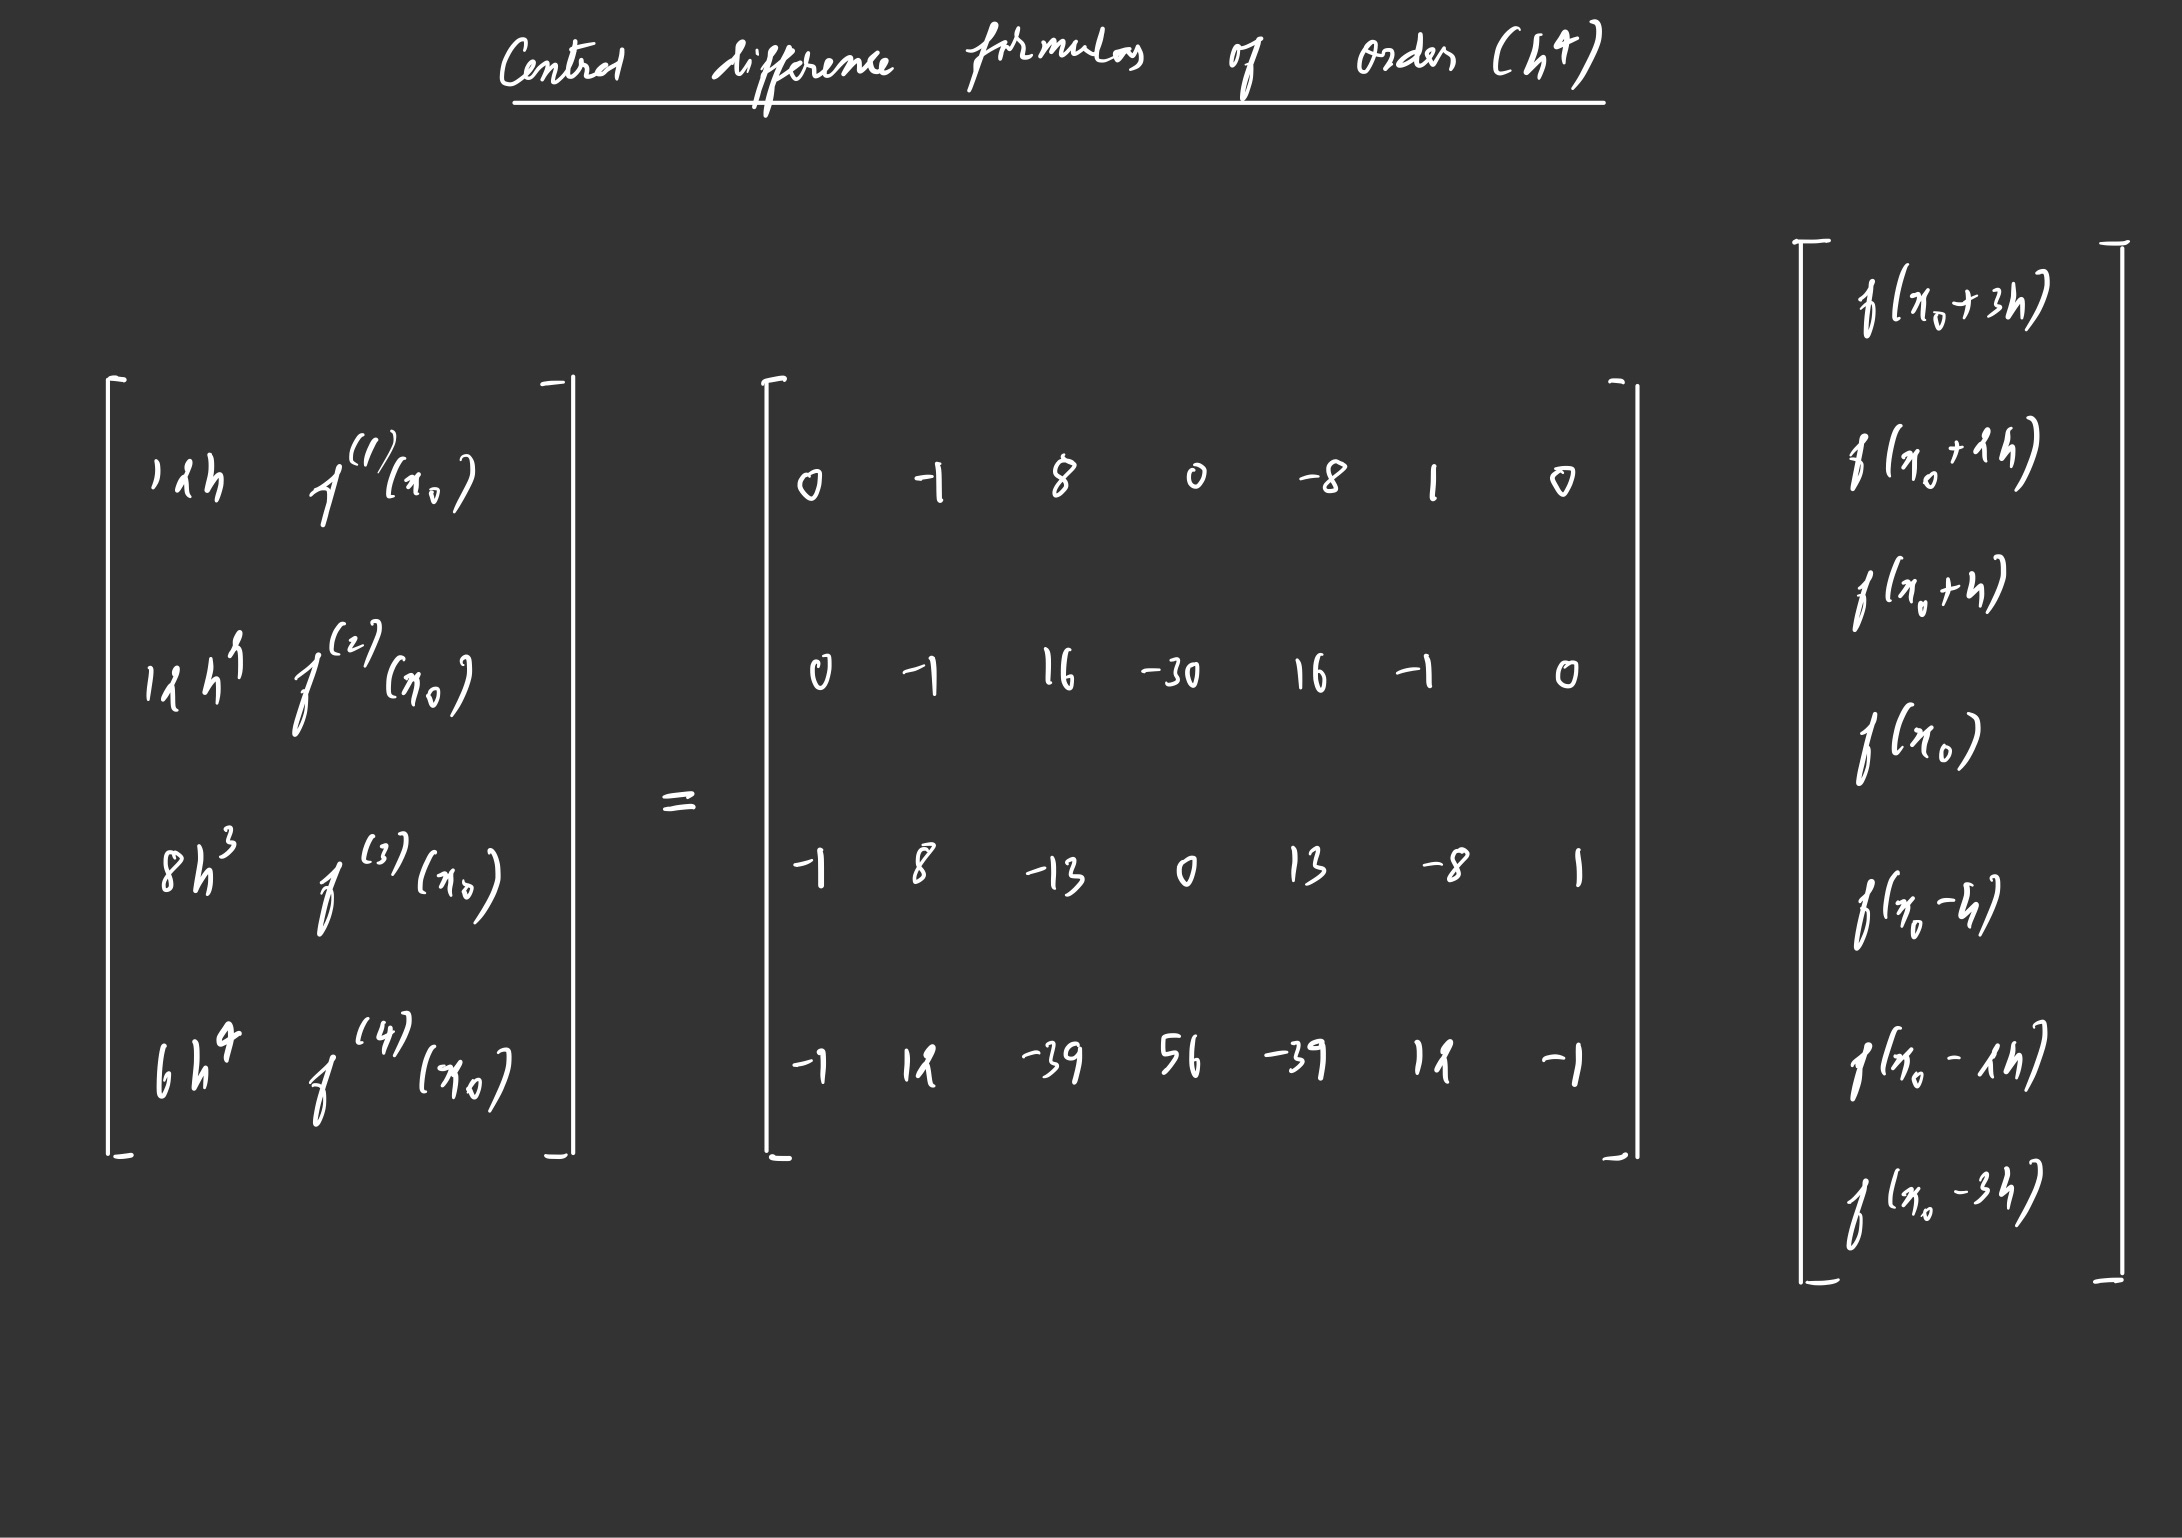 Central difference formulas of order (h⁴)
12h f⁽¹⁾(x₀)
12h² f⁽²⁾(x₀)
8h³ f⁽³⁾(x₀)
6h⁴ f⁽⁴⁾(x₀)
=
0 -1 8 0 -8 1 0
0 -1 16 -30 16 -1 0
-1 8 -13 0 13 -8 1
-1 12 -39 56 -39 12 -1
f(x₀+3h)
f(x₀+2h)
f(x₀+h)
f(x₀)
f(x₀-h)
f(x₀-2h)
f(x₀-3h)